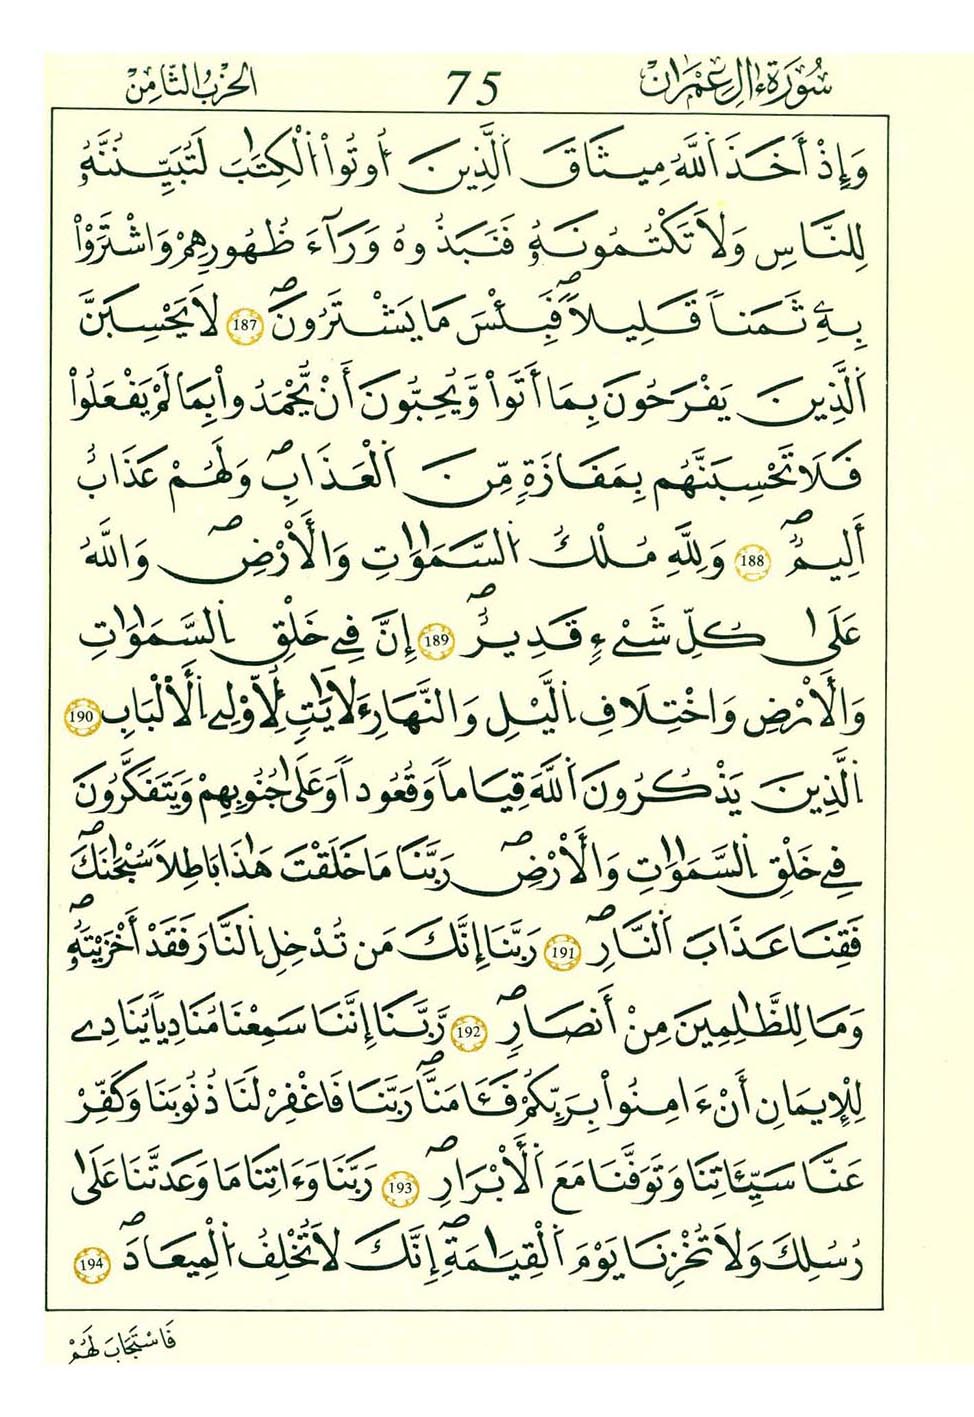 سُورَةُ ءَالِ عِمْرَانَ 75 الحِزْبُ الثَّامِنُ
وَإِذْ أَخَذَ اَللَّهُ مِيثَاقَ اَلذِينَ أُوتُواْ اُلْكِتَٰبَ لَتُبَيِّنُنَّهُۥ
لِلنَّاسِ وَلَا تَكْتُمُونَهُۥ فَنَبَذُوهُ وَرَآءَ ظُهُورِهِمْ وَاشْتَرَوْاْ
بِهِۦ ثَمَناٗ قَلِيلاٗۖ فَبِئْسَ مَا يَشْتَرُونَۖ 187 لَا يَحْسِبَنَّ
اَلذِينَ يَفْرَحُونَ بِمَا أَتَواْ وَّيُحِبُّونَ أَنْ يُّحْمَدُواْ بِمَا لَمْ يَفْعَلُواْ
فَلَا تَحْسِبَنَّهُم بِمَفَازَةٖ مِّنَ اَلْعَذَابِۖ وَلَهُمْ عَذَابٌ
أَلِيمٞۖ 188 وَلِلهِ مُلْكُ اُلسَّمَٰوَٰتِ وَالْأَرْضِۖ وَاللَّهُ
عَلَىٰ كُلِّ شَےْءٖ قَدِيرٌۖ 189 إِنَّ فِے خَلْقِ اِلسَّمَٰوَٰتِ
وَالْأَرْضِ وَاخْتِلَافِ اِليْلِ وَالنَّهَارِ ءَلَايَٰتٖ لِّأُوْلِے اِلْأَلْبَٰبِ 190
اِلذِينَ يَذْكُرُونَ اَللَّهَ قِيَاماٗ وَقُعُوداٗ وَعَلَىٰ جُنُوبِهِمْ وَيَتَفَكَّرُونَ
فِے خَلْقِ اِلسَّمَٰوَٰتِ وَالْأَرْضِۖ رَبَّنَا مَا خَلَقْتَ هَٰذَا بَاطِلاٗ سُبْحَٰنَكَۖ
فَقِنَا عَذَابَ اَلنَّارِۖ 191 رَبَّنَا إِنَّكَ مَن تُدْخِلِ اِلنَّارَ فَقَدْ أَخْزَيْتَهُۥۖ
وَمَا لِلظَّٰلِمِينَ مِنْ أَنصَارٖۖ 192 رَّبَّنَا إِنَّنَا سَمِعْنَا مُنَادِياٗ يُنَادِے
لِلْإِيمَانِ أَنْ ءَامِنُواْ بِرَبِّكُمْ فَـَٔامَنَّاۖ رَبَّنَا فَاغْفِرْ لَنَا ذُنُوبَنَا وَكَفِّرْ
عَنَّا سَيِّـَٔاتِنَا وَتَوَفَّنَا مَعَ اَلْأَبْرَارِۖ 193 رَبَّنَا وَءَاتِنَا مَا وَعَدتَّنَا عَلَىٰ
رُسُلِكَ وَلَا تُخْزِنَا يَوْمَ اَلْقِيَٰمَةِۖ إِنَّكَ لَا تُخْلِفُ اُلْمِيعَادَۖ 194
فَاسْتَجَابَ لَهُمْ